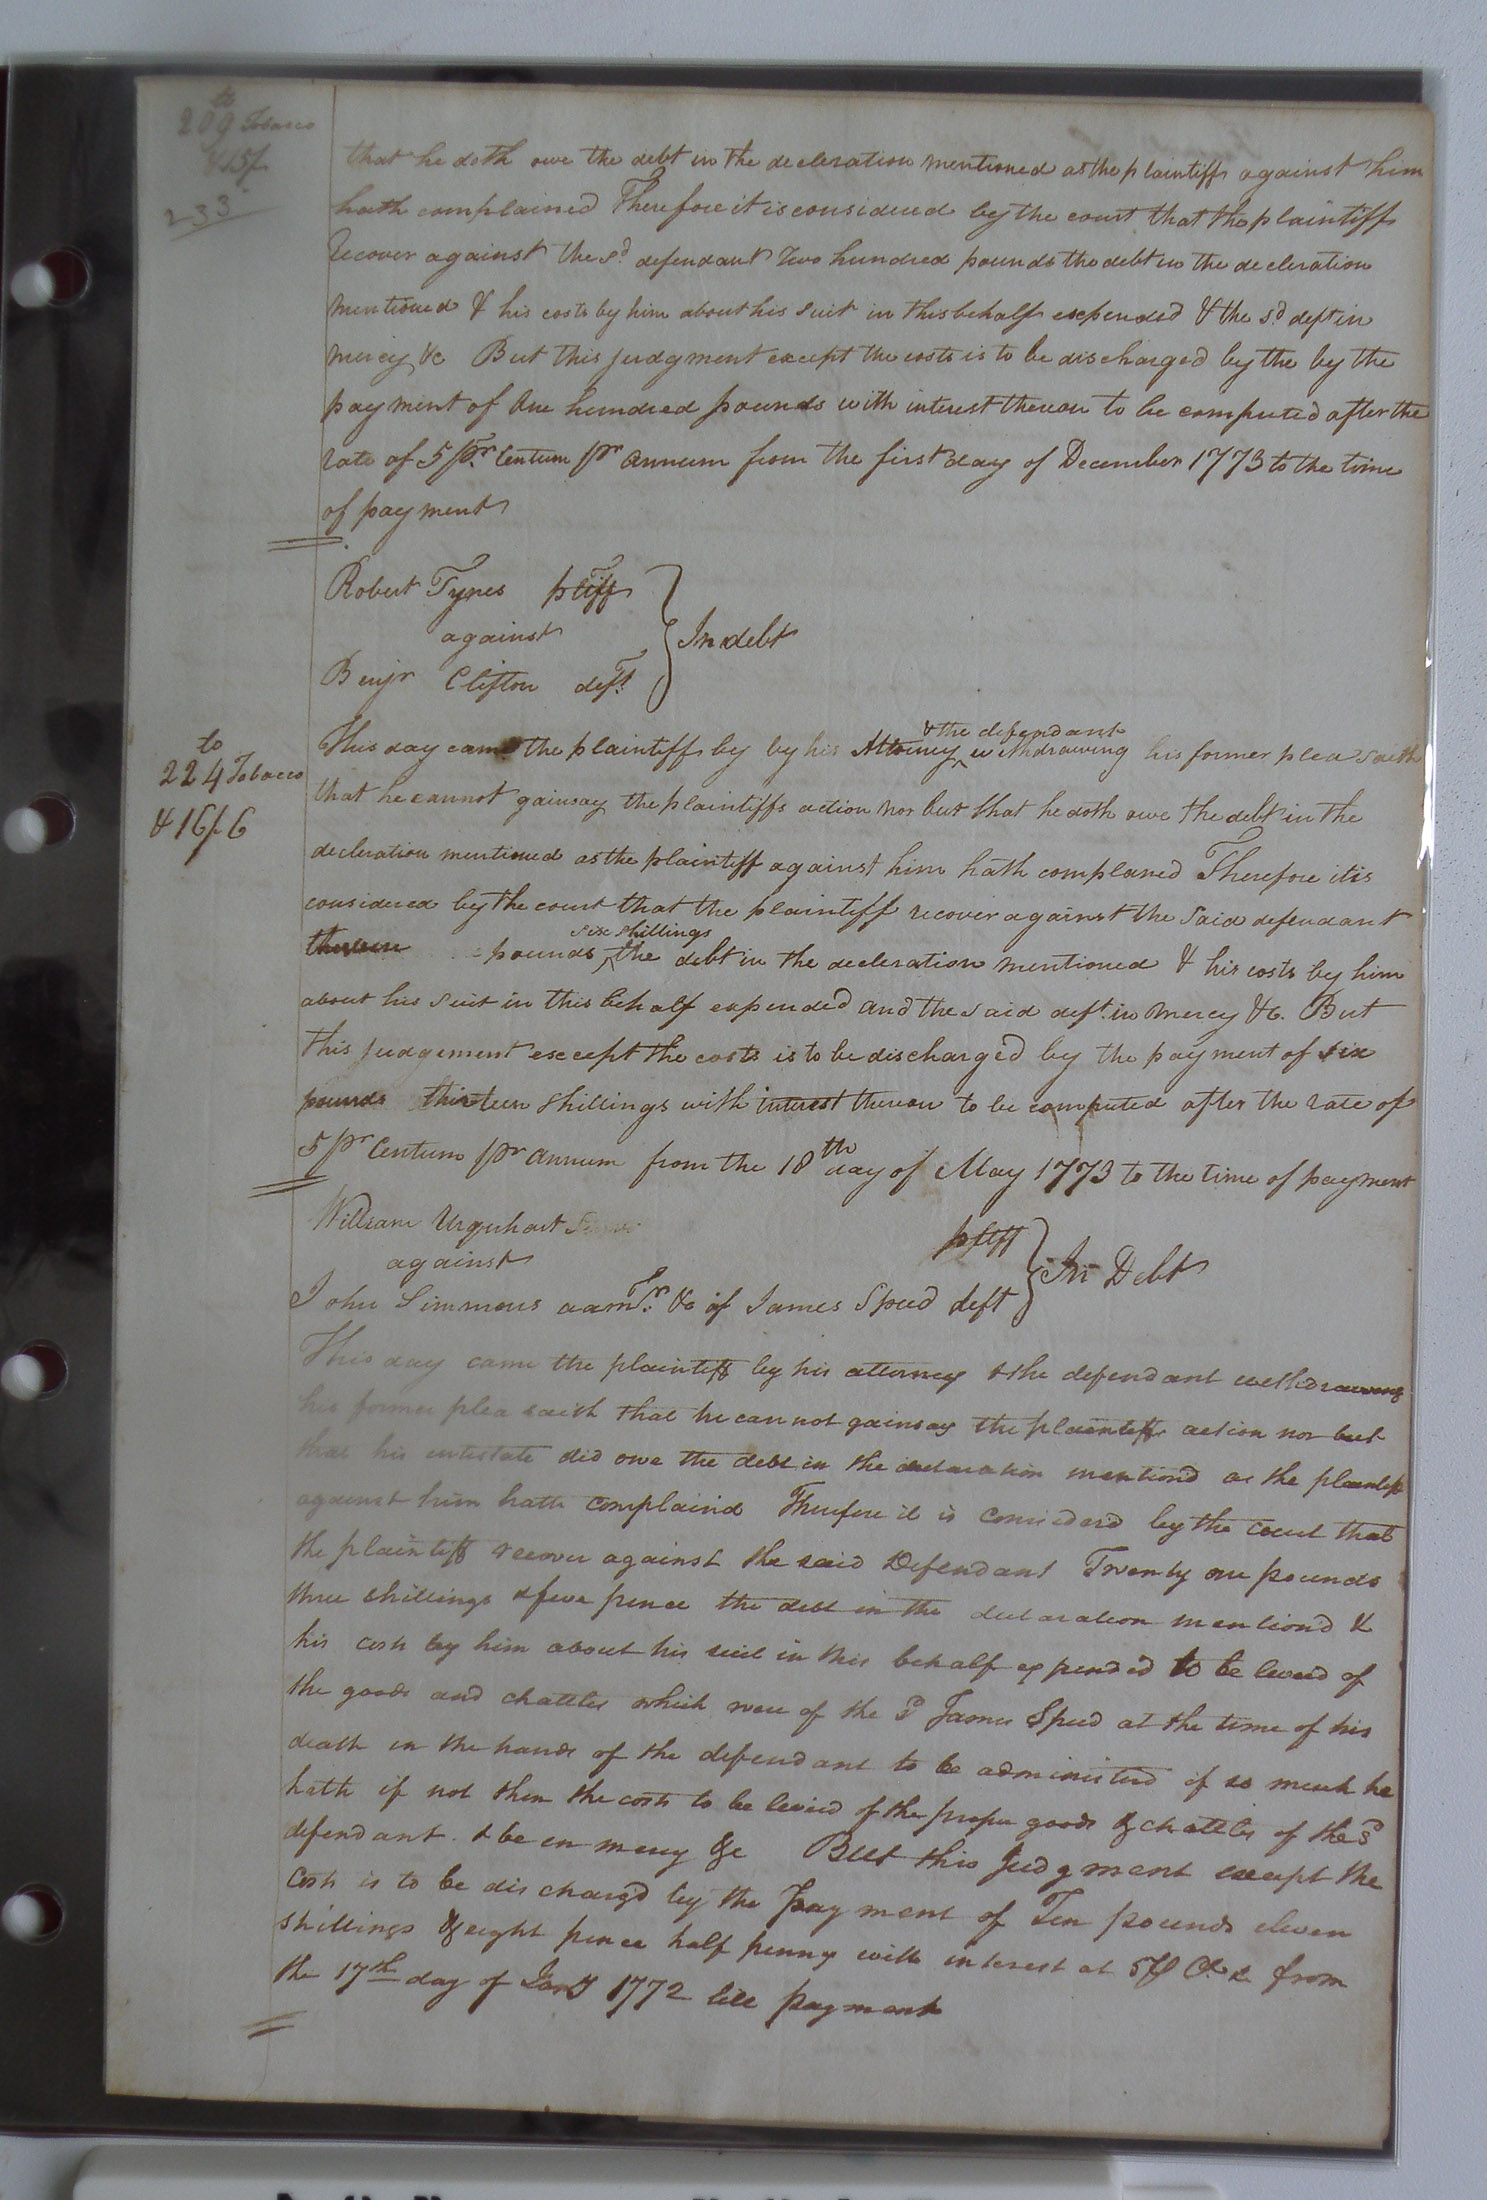 to
209 Tobacco
& 15/
233
that he doth owe the debt in the decleration mentioned as the plaintiffs against him
hath complained Therefore it is considered by the court that the plaintiff
Recover against the sd defendant Two hundred pounds the debt in the decleration
mentioned & his costs by him about his suit in this behalf expended & the sd deft in
mercy &c But this judgment except the costs is to be discharged by the by the
payment of One hundred pounds with interest thereon to be computed after the
rate of 5 pr Centum pr annum from the first day of December 1773 to the time
of payment
Robert Tynes pltiff
against
In debt
Benjr Clifton deft
to
224 Tobacco
& 16/6
& the defendant
This day came the plaintiff by by his Attorney withdrawing his former plea saith
that he cannot gainsay the plaintiffs action nor but that he doth owe the debt in the
decleration mentioned as the plaintiff against him hath complaned Therefore it is
considered by the court that the plaintiff recover against the said defendant
six shillings
pounds the debt in the decleration mentioned & his costs by him
about his suit in this behalf expended and the said deft in mercy &c. But
this judgement except the costs is to be discharged by the payment of six
pounds thirteen shillings with interest thereon to be computed after the rate of
5 pr Centum pr annum from the 18th day of May 1773 to the time of payment
William Urquhart
pltff
against
In Debt
John Simmons admr. &c of James Speed deft
This day came the plaintiff by his attorney & the defendant withdrawing
his former plea saith that he cannot gainsay the plaintiffs action nor but
that his intestate did owe the debt in the declaration mentiond as the plaintiff
against him hath complaind Therefore it is considerd by the court that
the plaintiff recover against the said Defendant Twenty one pounds
three shillings & five pence the debt in the declaration mentiond &
his costs by him about his suit in this behalf expended to be levied of
the goods and chattles which were of the sd James Speed at the time of his
death in the hands of the defendant to be administerd if so much he
hath if not then the costs to be levied of the proper goods & chattles of the sd
defendant & be in mercy &c But this Judgment except the
Costs is to be dischargd by the payment of Ten pounds eleven
shillings & eight pence half penny with interest at 5 from
the 17th day of Jany 1772 till payment